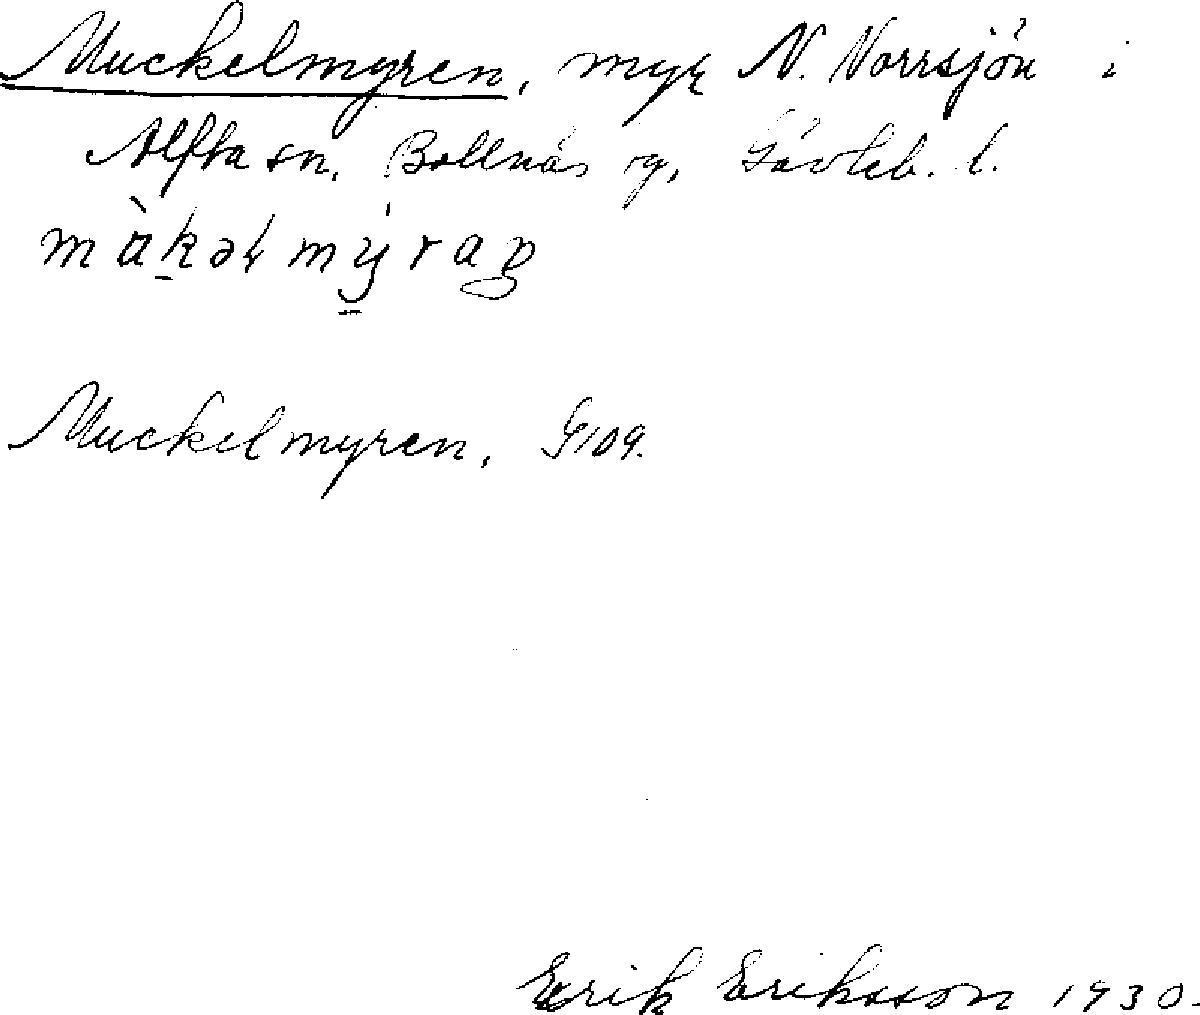 Muckelmyren, myr N. Norrsjön i
Alfta sn. Bollnäs rg, Gävleb. l.
Muckelmyren, G109.
Erik Eriksson 1930.